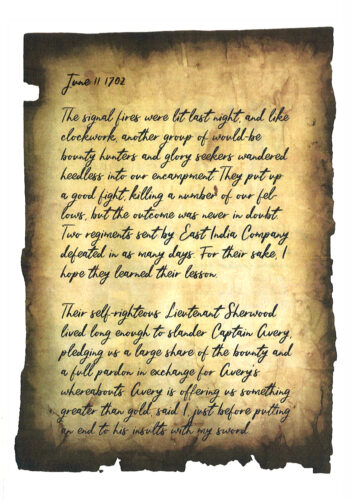 June 11 1702
The signal fires were lit last night, and like
clockwork, another group of would-be
bounty hunters and glory seekers wandered
heedless into our encampment. They put up
a good fight, killing a number of our fel-
lows, but the outcome was never in doubt.
Two regiments sent by East India Company
defeated in as many days. For their sake, I
hope they learned their lesson.
Their self-righteous Lieutenant Sherwood
lived long enough to slander Captain Avery,
pledging us a large share of the bounty and
a full pardon in exchange for Avery's
whereabouts. Avery is offering us something
greater than gold, said I, just before putting
an end to his insults with my sword.